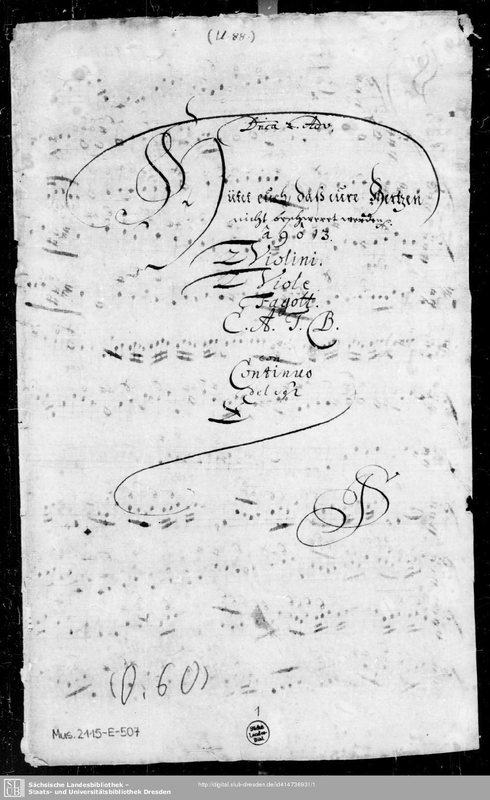 (U. 88.)
Dnca 2. Adv.
Hütet euch, daß eure Hertzen
nicht beschweret werden.
â 9 ô 13.
2 Violini.
2 Viole
Fagott.
C. A. T. B.
con
Continuo
del
(O. 60)
Mus. 2115-E-507
1
Sächs.
Landes-
Bibl.
Sächsische Landesbibliothek –
Staats- und Universitätsbibliothek Dresden
http://digital.slub-dresden.de/id414736931/1
SLUB